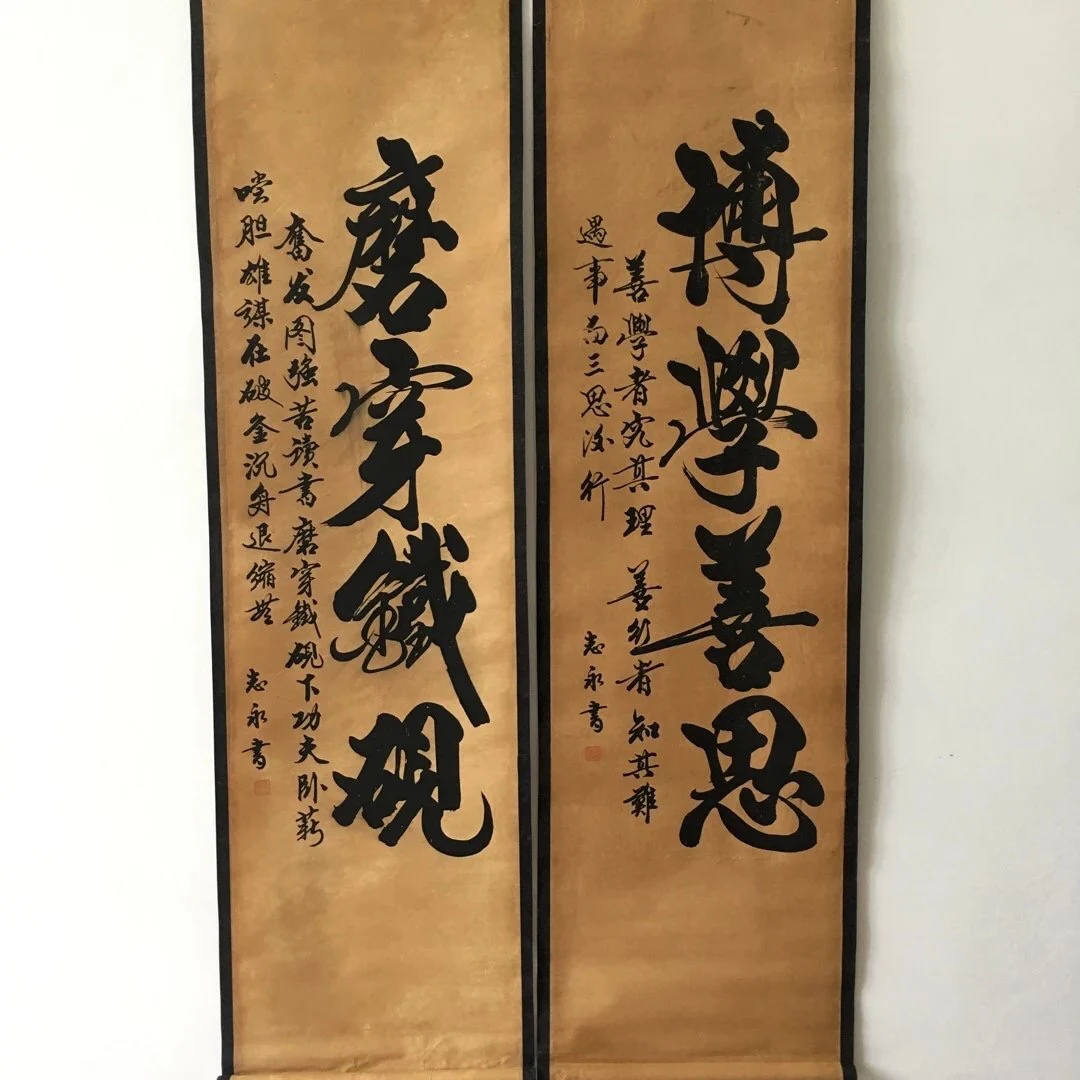 博學善思
善學者究其理善行者知其難
遇事而三思後行
志永書
磨穿鐵硯
奮发图强苦讀書磨穿鐵硯下功夫卧薪
嘗胆雄謀在破釜沉舟退縮無
志永書